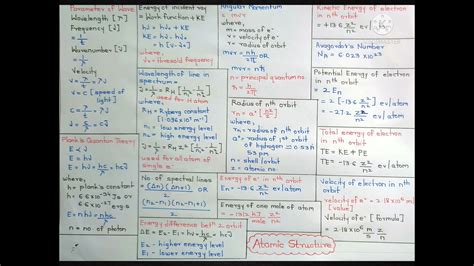 Parameter of Wave
Wavelength [λ]
Frequency [ν]
ν = 1/T
Wavenumber [ν̄]
ν̄ = 1/λ
Velocity
ν = c/λ
c = [speed of light]
ν̄ = 1/λ
Plank's Quantum Theory
E ∝ ν
E = hν = hc/λ = hcν̄
where,
h = plank's constant
h = 6.6×10⁻³⁴ J·s
Or
6.6×10⁻²⁷ erg·s
E = nhν = nhc/λ
n = no. of photon
Energy of incident ray
= Work function + KE
hν = hν₀ + KE
KE = hν - hν₀
= h [ν - ν₀]
where,
ν₀ = threshold frequency
Wavelength of line in spectrum =
ν̄ = 1/λ = R_H [1/n₁² - 1/n₂²]
used for H atom
where,
R_H = Rydberg constant
n₁ = low energy level
n₂ = high energy level
used for all atom
No. of spectral lines
= (Δn)(Δn+1)/2 OR
Energy difference betⁿ 2 orbit
ΔE = E₂ - E₁ = hν = hc/λ = hcν̄
E₂ - higher energy level
E₁ - lower energy level
Angular Momentum
= mvr
where,
m = mass of e⁻
v = velocity of e⁻
r = radius of orbit
mvr = nh/2π
mvr = nħ
n = principal quantum no.
ħ = h/2π
Radius of nth orbit
where,
rₙ = radius of nth orbit
a° = radius of 1st orbit of hydrogen = 0.53 Å
53 pm
n = shell/orbit
z = atomic no.
Energy of e⁻ in nth orbit
Eₙ = -13.6 z²/n² ev/atom
Energy of one mole of atom
= -1312 KJ z²/n²
Atomic Structure
Kinetic Energy of electron in nth orbit
= +13.6 z²/n² ev/atom
Avogardo's Number
N_A = 6.023×10²³
Potential Energy of electron in nth orbit
= 2 Eₙ
= 2 [-13.6 z²/n²] ev/atom
= -27.2 z²/n² ev/atom
Total energy of electron in nth orbit
TE = KE + PE
TE = -13.6 z²/n² ev/atom
Velocity of electron in nth orbit
Velocity of e⁻ [Formula]